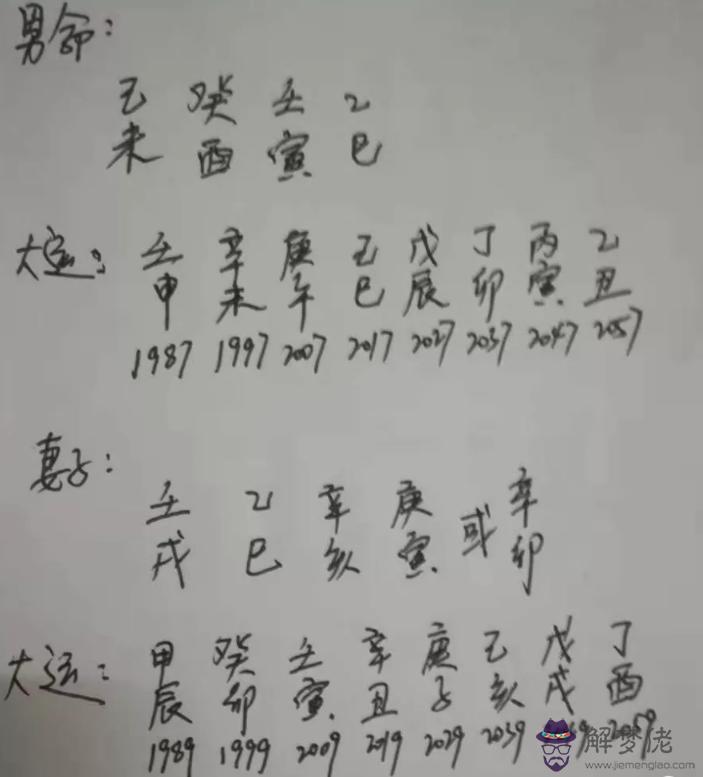 男命：
己 癸 壬 乙
未 酉 寅 巳
大运： 壬 辛 庚 己 戊 丁 丙 乙
申 未 午 巳 辰 卯 寅 丑
1987 1997 2007 2017 2027 2037 2047 2057
妻子：
壬 乙 辛 庚 或 辛
戌 巳 亥 寅 卯
大运： 甲 癸 壬 辛 庚 己 戊 丁
辰 卯 寅 丑 子 亥 戌 酉
1989 1999 2009 2019 2029 2039
解梦佬
www.jiemenglao.com